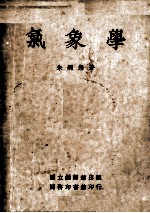 氣象學
朱炳海 著
國立編譯館出版
商務印書館印行